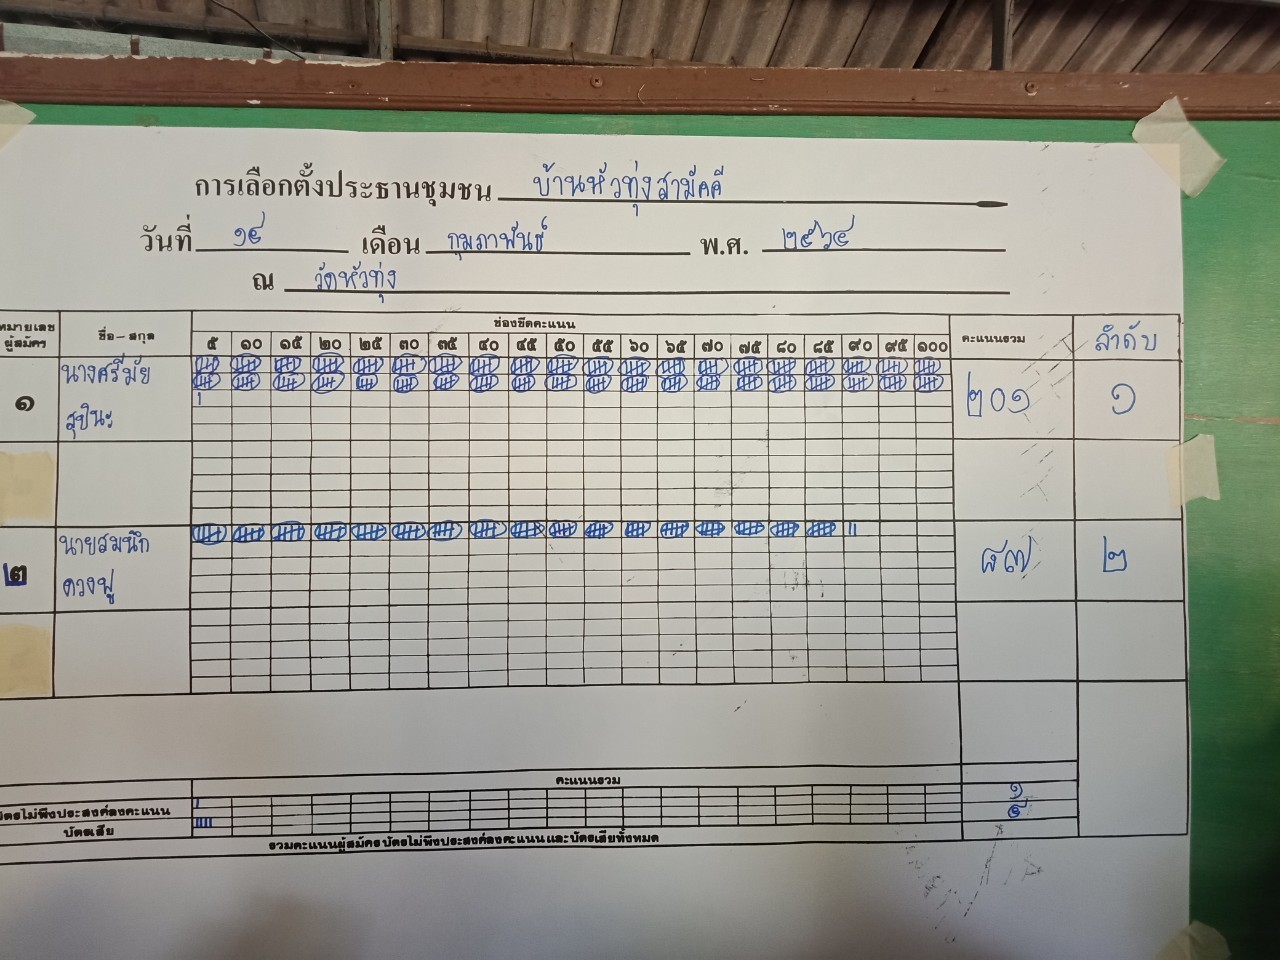 การเลือกตั้งประธานชุมชน บ้านหัวทุ่งสามัคคี
วันที่ ๑๔ เดือน กุมภาพันธ์ พ.ศ. ๒๕๖๔
ณ วัดหัวทุ่ง
หมายเลขผู้สมัคร ชื่อ-สกุล ช่องขีดคะแนน คะแนนรวม ลำดับ
๕ ๑๐ ๑๕ ๒๐ ๒๕ ๓๐ ๓๕ ๔๐ ๔๕ ๕๐ ๕๕ ๖๐ ๖๕ ๗๐ ๗๕ ๘๐ ๘๕ ๙๐ ๙๕ ๑๐๐
๑ นางศรีมัย สุปินะ ๒๐๑ ๑
๒ นายสมนึก ดวงฟู ๘๗ ๒
คะแนนรวม
บัตรไม่พึงประสงค์ลงคะแนน ๑
บัตรเสีย ๕
รวมคะแนนผู้สมัคร บัตรไม่พึงประสงค์ลงคะแนน และบัตรเสียทั้งหมด